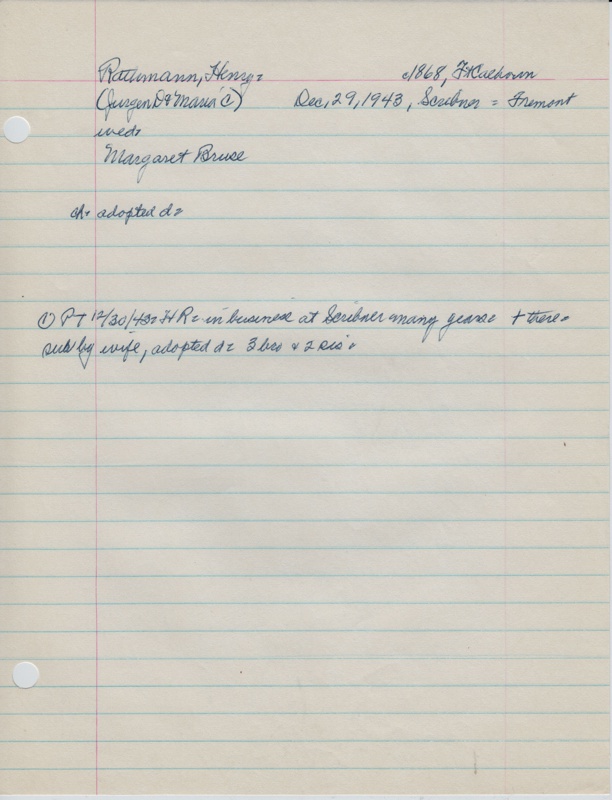 Rathmann, Henry = c1868, Ft Calhoun
(Jurgen D & Maria ①) Dec, 29, 1943, Scribner = Fremont
wed =
Margaret Bruse
ch = adopted d =
① PT 12/30/43 = HR = in business at Scribner many years = + there =
sub by wife, adopted d = 3 bro & 2 sis =